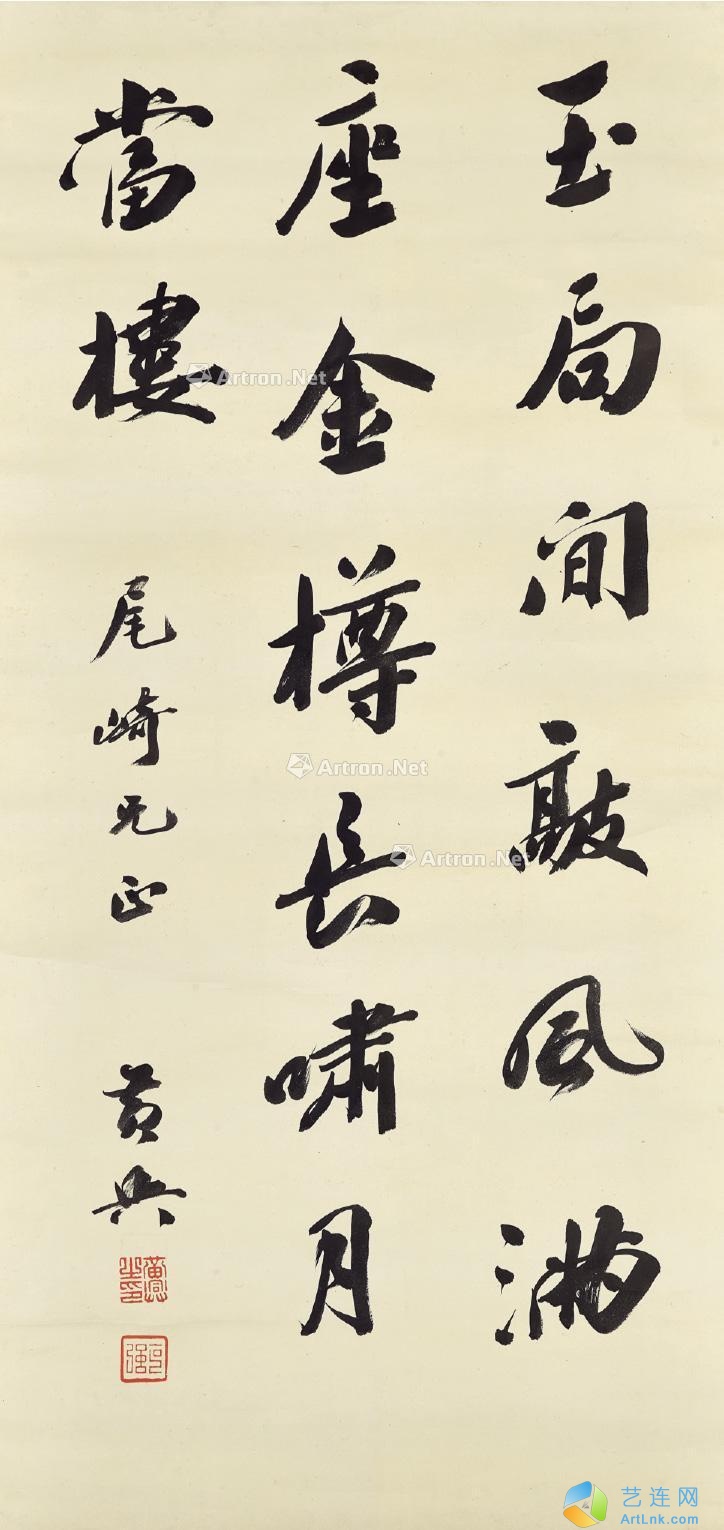 玉局间敲風滿
座金樽長嘯月
當樓 尾崎兄正 黄興
Artron.Net
Artron.Net
Artron.Net
艺连网
ArtLnk.com